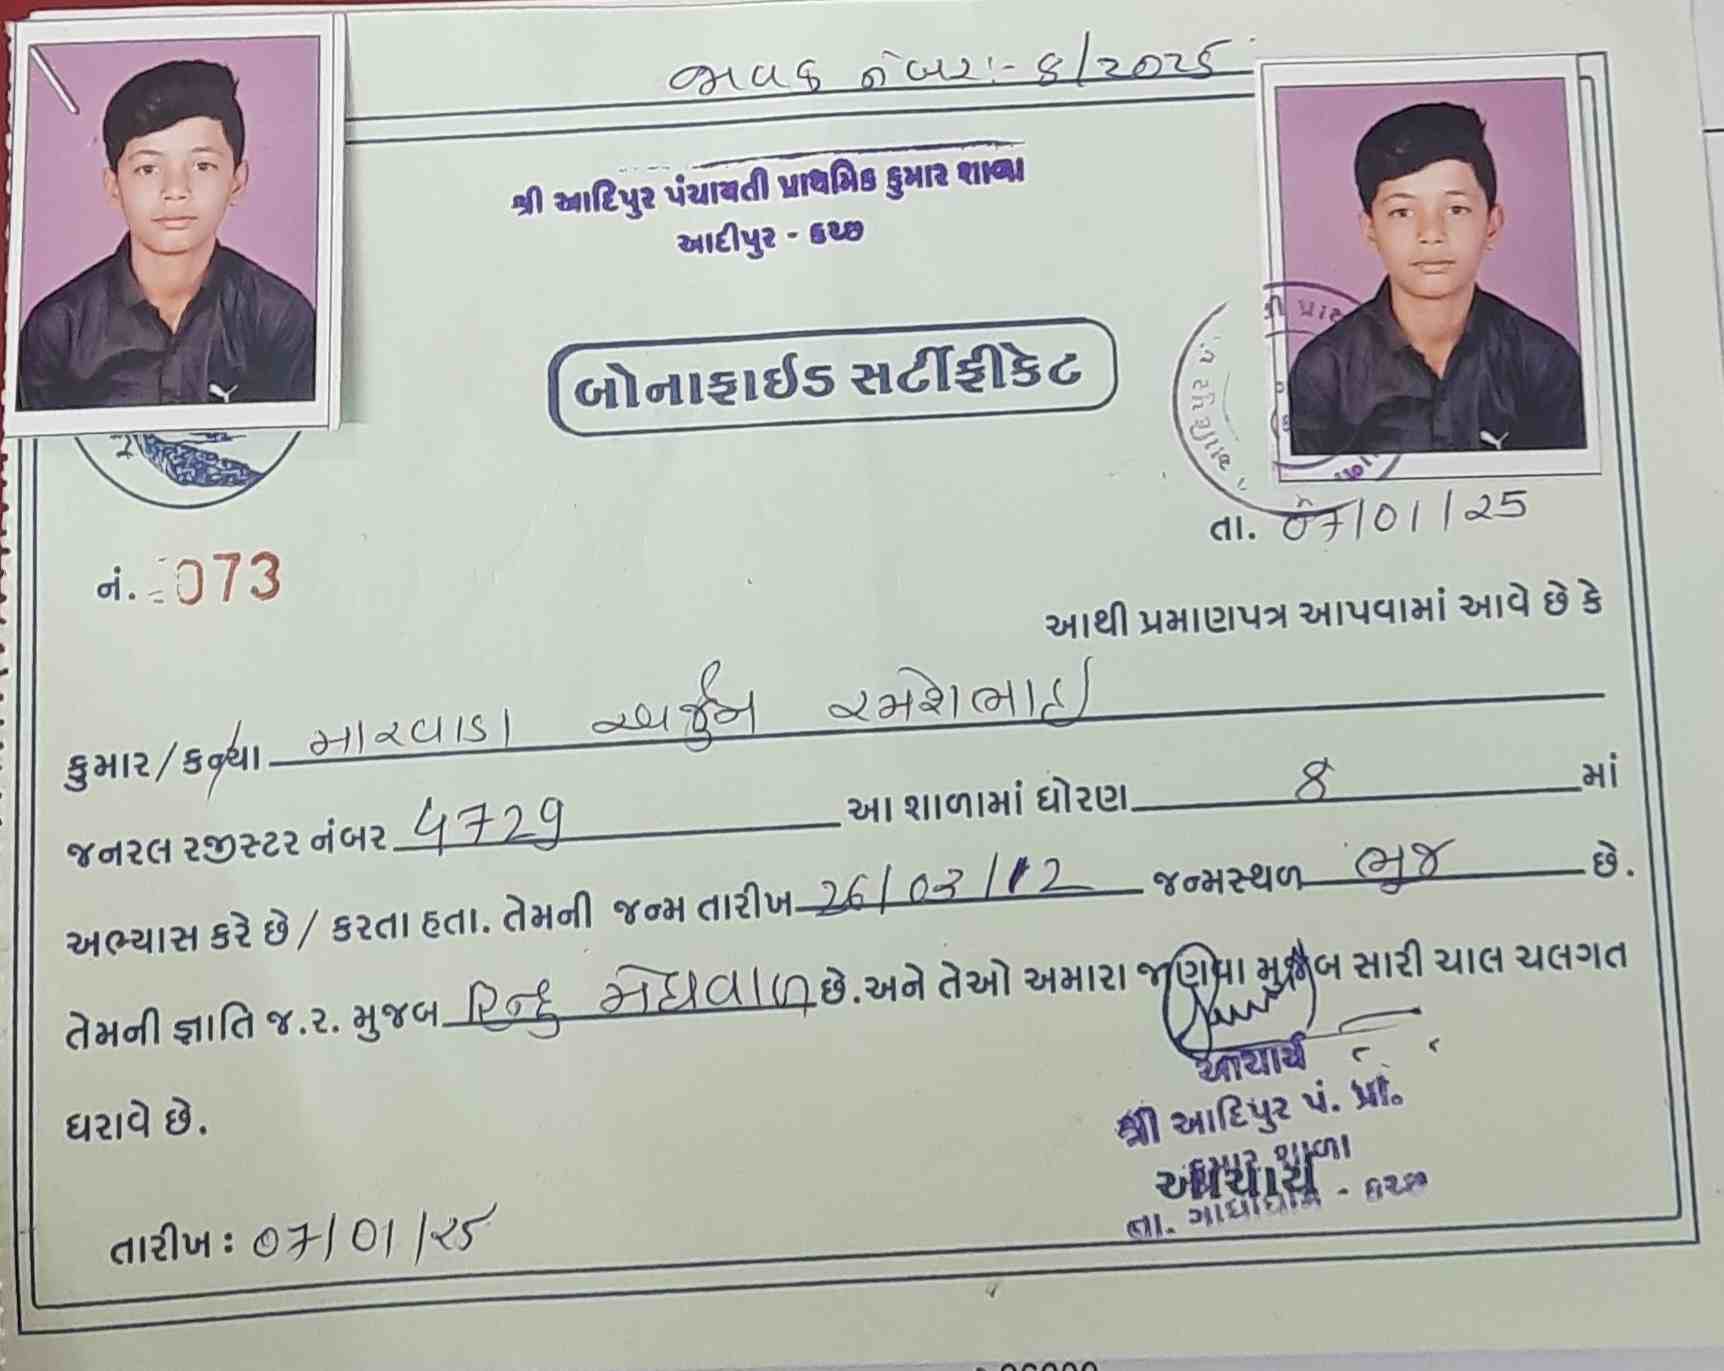 જાવક નંબર :- 8/2025
શ્રી આદિપુર પંચાયતી પ્રાથમિક કુમાર શાળા
આદીપુર - કચ્છ
બોનાફાઈડ સર્ટીફીકેટ
તા. 07/01/25
નં. 073
આથી પ્રમાણપત્ર આપવામાં આવે છે કે
કુમાર/કન્યા મારવાડા અર્જુન રમેશભાઈ
જનરલ રજીસ્ટર નંબર 4729 આ શાળામાં ધોરણ 8 માં
અભ્યાસ કરે છે / કરતા હતા. તેમની જન્મ તારીખ 26/03/12 જન્મસ્થળ ભુજ છે.
તેમની જ્ઞાતિ જ.ર. મુજબ હિન્દુ મેઘવાળ છે. અને તેઓ અમારા જાણવા મુજબ સારી ચાલ ચલગત
ધરાવે છે.
આચાર્ય
શ્રી આદિપુર પં. પ્રા.
કુમાર શાળા
આચાર્ય
તા. ગાંધીધામ - કચ્છ
તારીખ : 07/01/25